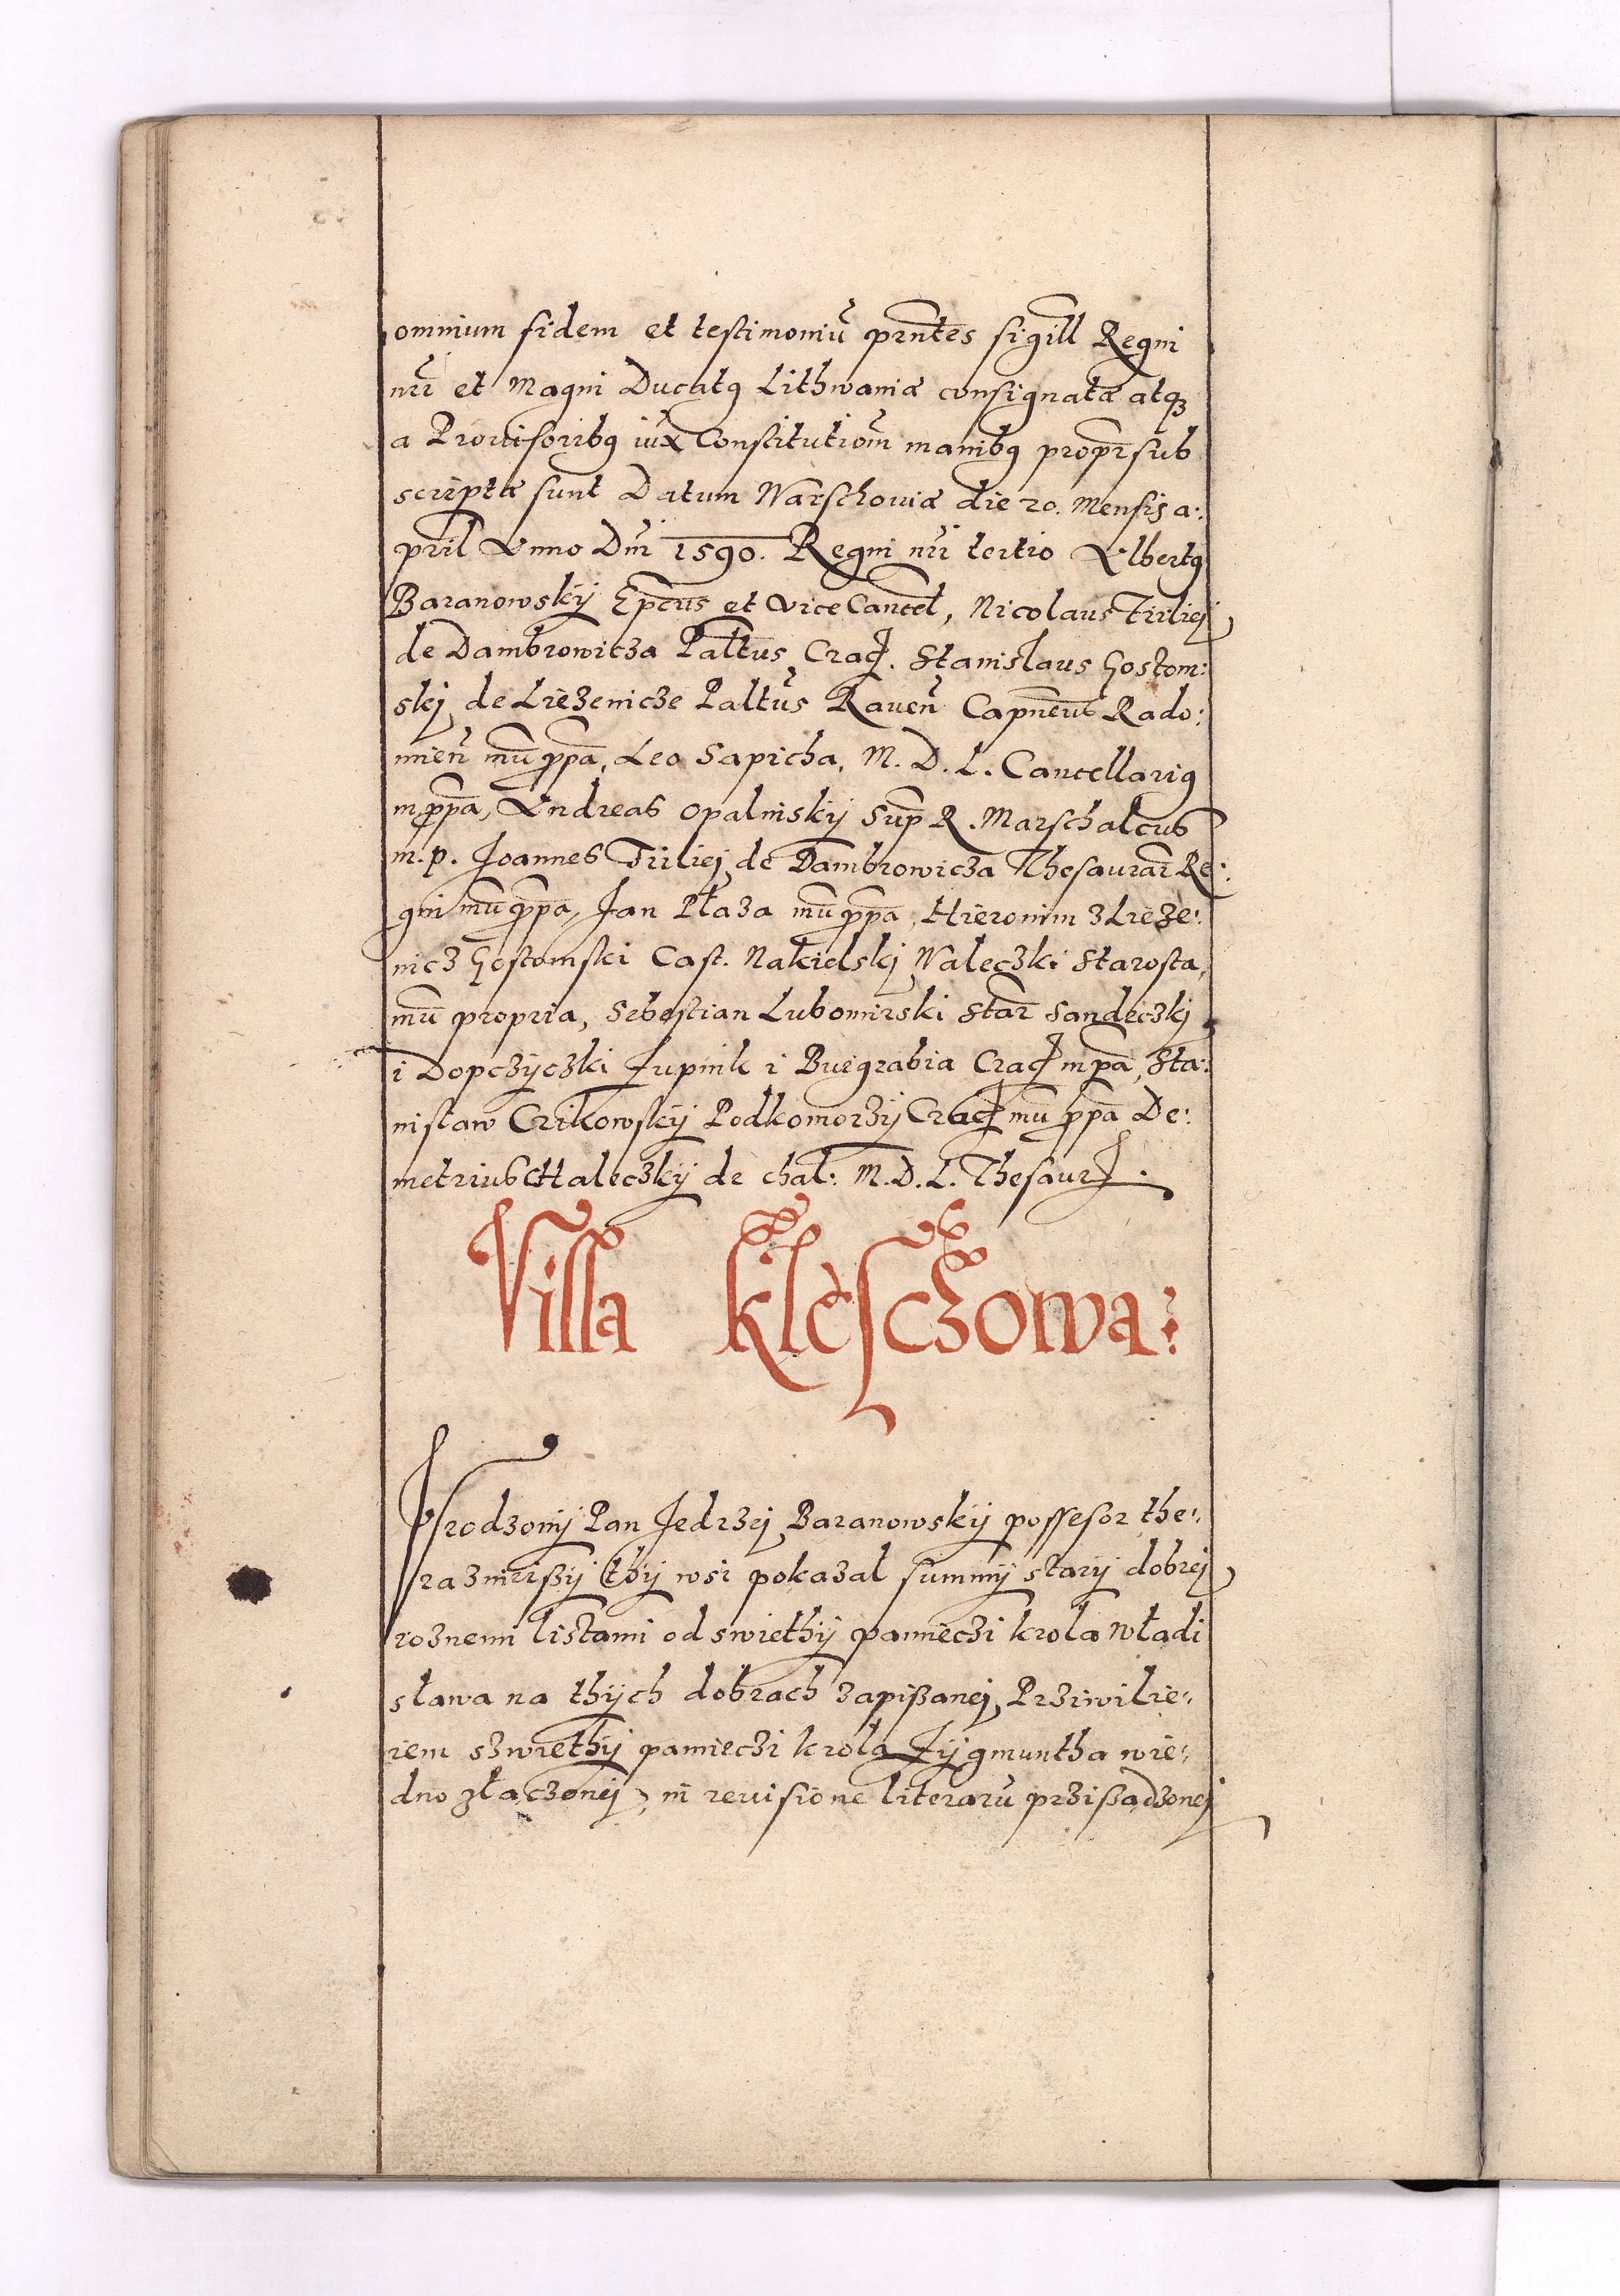 omnium fidem et testimoniū prnтes sigill Regni
nri et Magni Ducatus Lithwaniæ consignatæ atq3
a Provisoribus iux Constitutiom manibus propr sub
scriptæ sunt Datum Warschoviæ die 20. Mensis a:
pril Anno Dni 1590. Regni nri tertio Albertus
Baranowskÿ Epcus et vice Cancel, Nicolaus Firliej
de Dambrowicza Paltus Crac. Stanislaus Gostom:
skj de Liezenicze Paltus Raven Capneus Rado:
mien mu ppa, Leo Sapieha, M. D. L. Cancellarius
m ppa, Andreas Opalinskÿ Sup R. Marschalcus
m. p. Joannes Firliej de Dambrowicza Thesaurar Re:
gni mu ppa, Jan Płaza mu ppa, Hieronim z Lieze:
nicz Gostomski Cast. Nakielskj Waleczki Starosta,
mu propria, Sebestian Lubomirski Star Sandeczkj
i Dopczÿczki Zupnik i Burgrabia Crac m pa, Sta:
nisław Czikowskÿ Podkomorzÿ Crac mu ppa De:
metrius Haleczkÿ de chal: M. D. L. Thesaur.
Villa Klesczowa:
Vrodzonÿ Pan Jedrzej Baranowskÿ possesor the:
razniejßÿ thÿ wsi pokazal summÿ starÿ dobrej
roznemi listami od swiethÿ pamieczi krola Władi
sława na thÿch dobrach zapißanej, Prziwilie:
iem szwiethÿ pamieczi krola Zÿgmuntha wie:
dno złaczonej, in revisione literarū przißadzonej